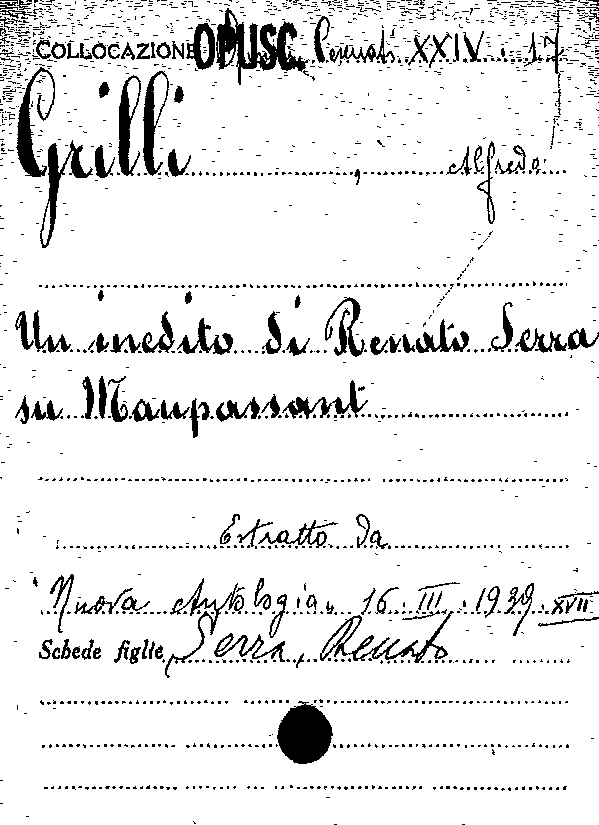 COLLOCAZIONE OPUSC. XXIV. 17
Grilli, Alfredo
Un inedito di Renato Serra
su Maupassant
Estratto da
Nuova Antologia, 16. III. 1939. XVII
Schede figlie Serra, Renato